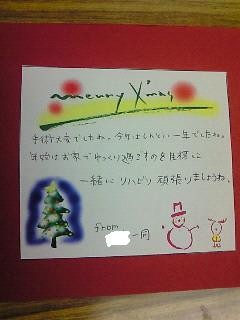 merry X'mas
手術大変でしたね。今年はしんどい一年でしたね。
年始はお家でゆっくり過ごすのを目標に
一緒にリハビリ頑張りましょうね。
from
一同